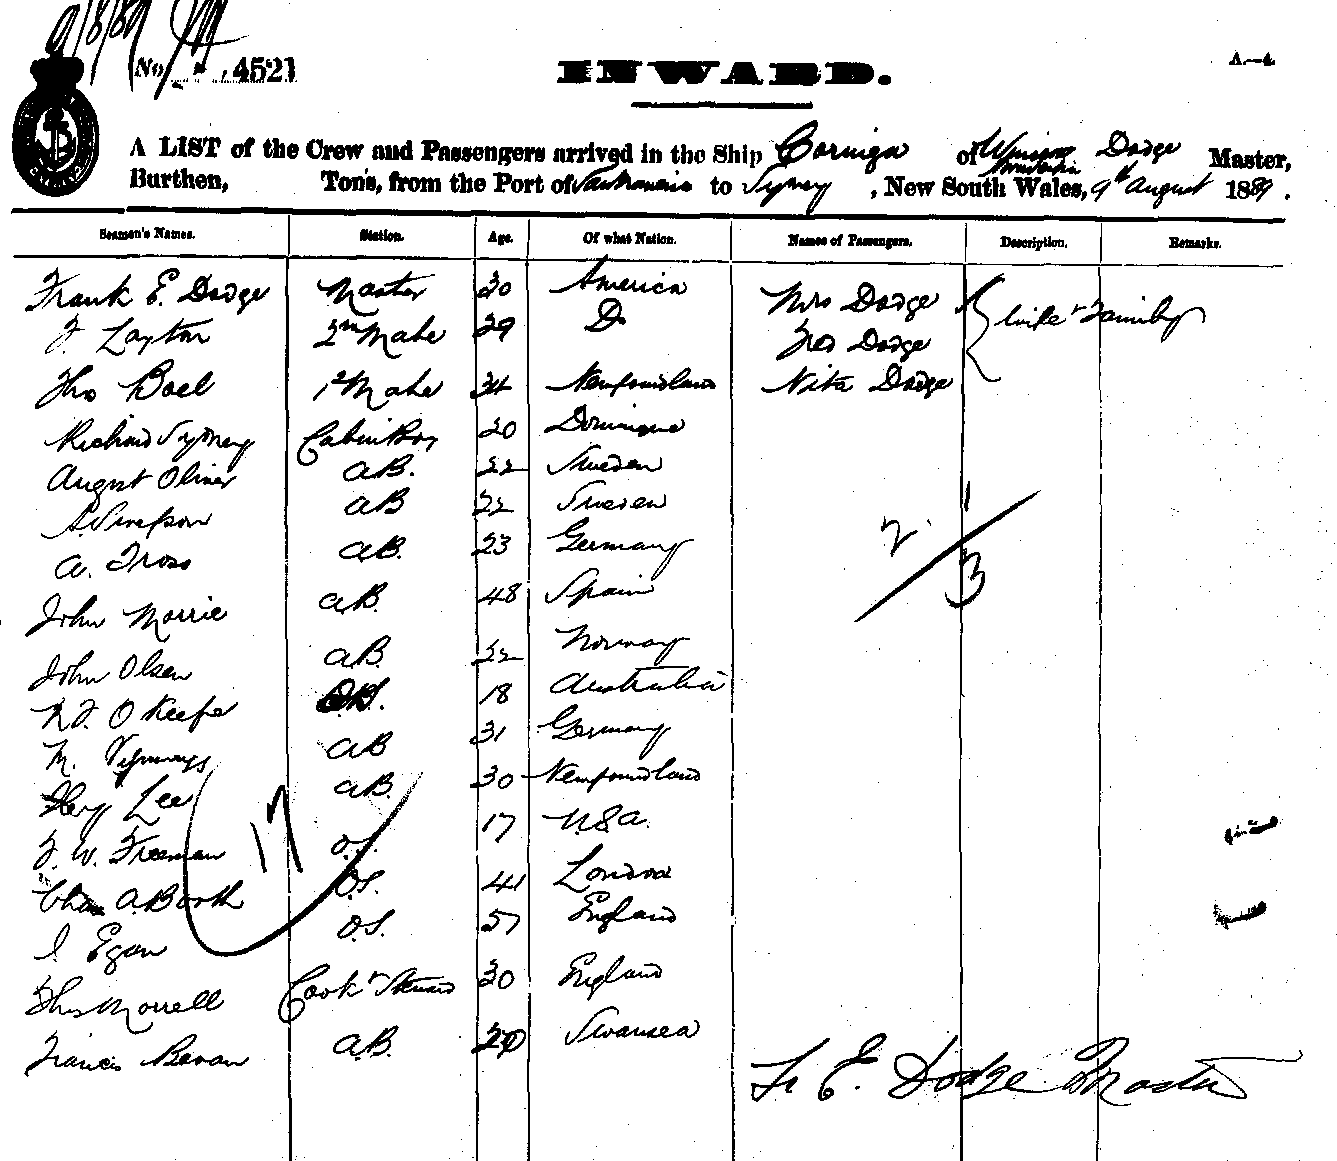 9/8/89
No. 4521
INWARD.
A—4
A LIST of the Crew and Passengers arrived in the Ship of Dodge Master,
Burthen, Tons, from the Port of San Francisco to Sydney, New South Wales, 9th August 1889.
Seamen's Names. Station. Age. Of what Nation. Names of Passengers. Description. Remarks.
Frank E. Dodge Master 30 America Mrs Dodge Wife & Family
F. Layton 2nd Mate 29 Do Fred Dodge
Tho Boel 1st Mate 34 Newfoundland Nita Dodge
Richard Sydney Cabin Boy 20
August Oliver A.B. 22 Sweden
A. Simpson AB 22 Sweden
A. Tross A.B. 23 Germany
John Morrie A.B. 48 Spain
John Olsen A.B. 22 Norway
O'Keefe O.S. 18 Australia
M. AB 31 Germany
Hery Lee A.B. 30 Newfoundland
F. W. Freeman O.S. 17 U.S.A.
Chas A. Booth O.S. 41 London
J Egan O.S. 57 England
Thos Morrell Cook & Steward 30 England
Francis Bevan A.B. 20 Swansea
2 1
3
17
Fr E. Dodge Master